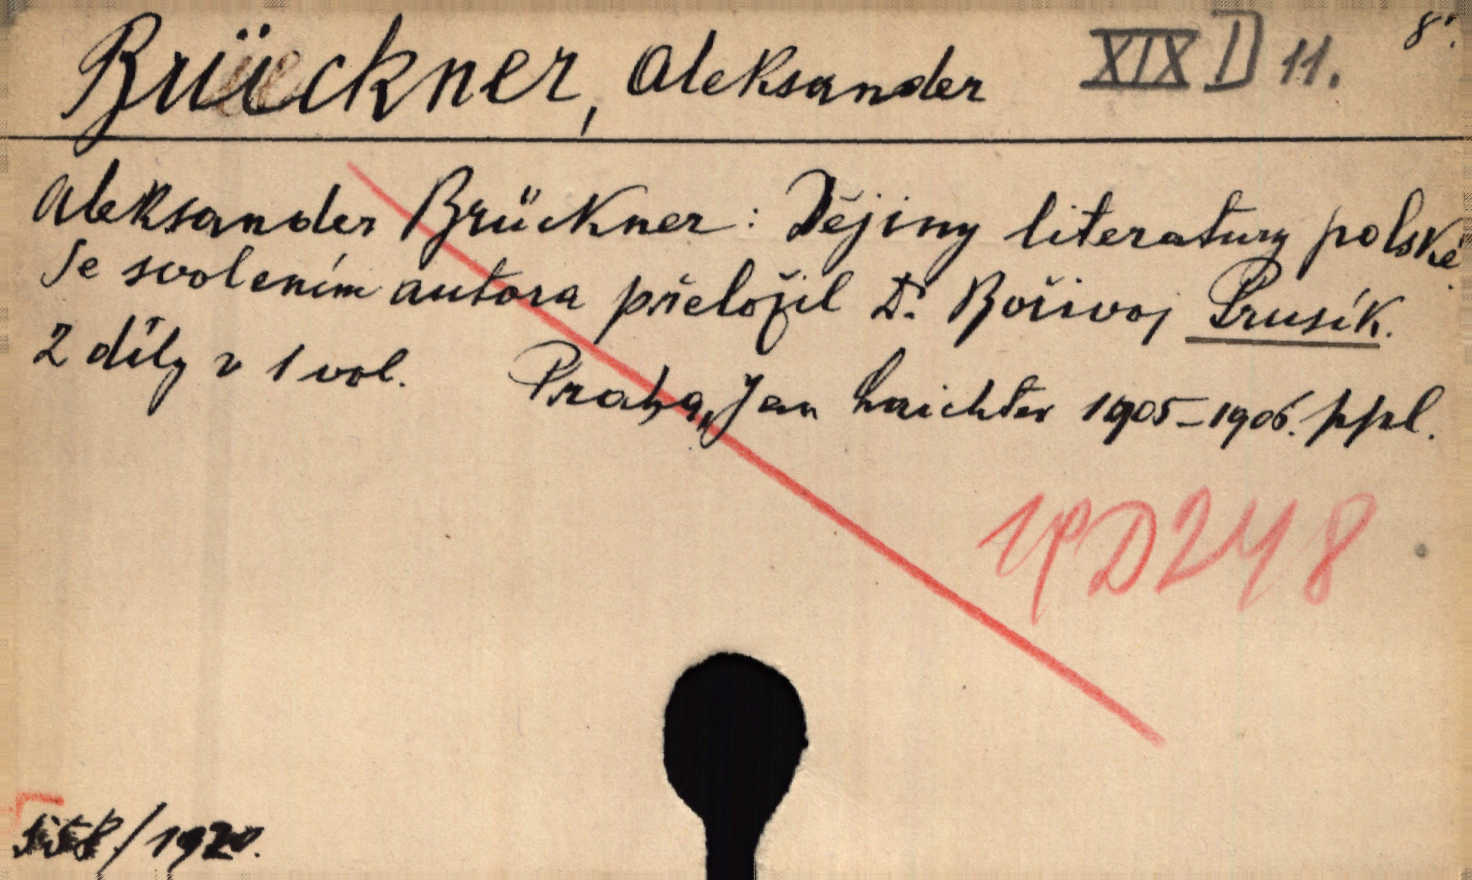 Brückner, Aleksander XIX D 11. 8°.
Aleksander Brückner: Dějiny literatury polské.
Se svolením autora přeložil Dr. Bořivoj Prusík.
2 díly v 1 vol. Praha, Jan Laichter 1905-1906. ppl.
1PD248
/1920.